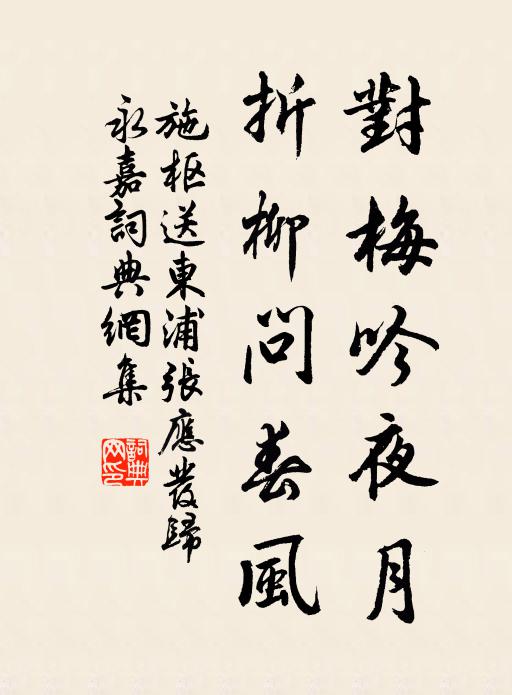 對梅吟夜月
折柳問春風
施枢送東浦張應發歸
永嘉詞典網集
詞典
网印